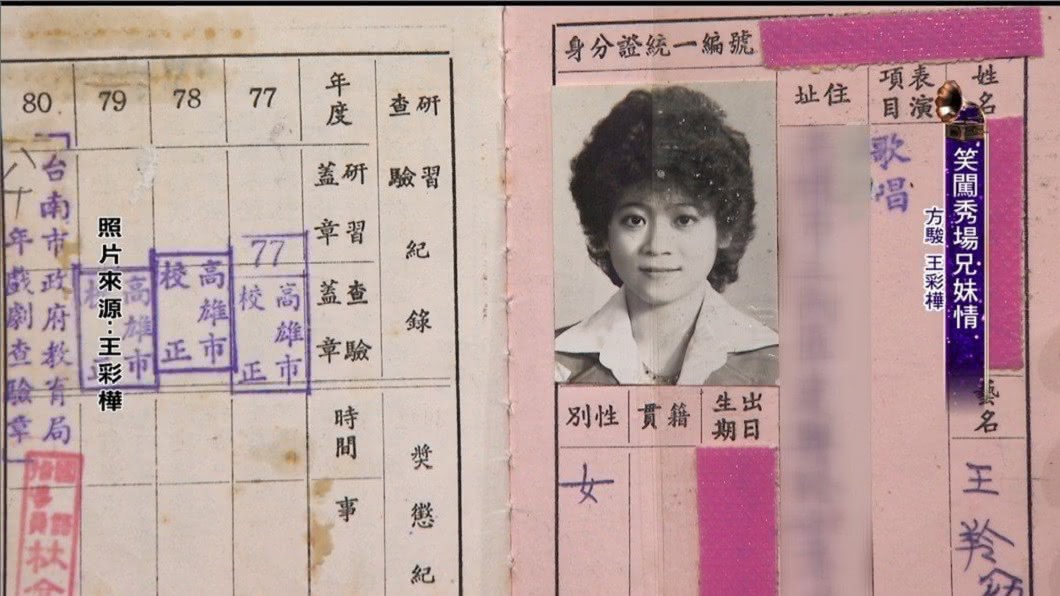 身分證統一編號
姓名
表演項目
住址
歌唱
藝名
王羚
出生日期
籍貫
性別
女
笑闖秀場兄妹情
方駿 王彩樺
研習查驗紀錄
年度
77
78
79
80
研習蓋章
查驗蓋章
77
高雄市
校正
高雄市
校正
高雄市
校正
台南市政府教育局
八十年戲劇查驗章
照片來源:王彩樺
獎懲紀
時間
事